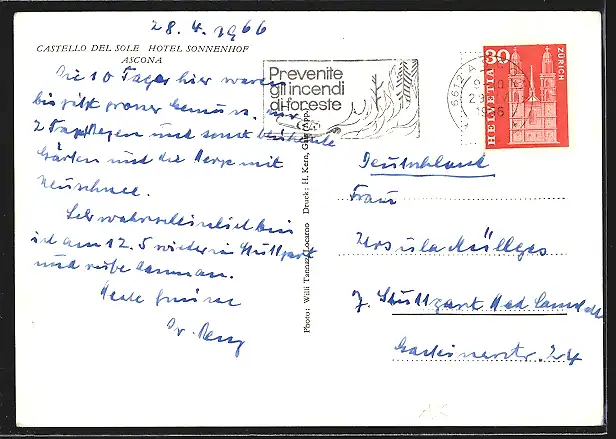 28. 4. 1966
CASTELLO DEL SOLE HOTEL SONNENHOF
ASCONA
Die 10 Tage hier waren
bis jetzt grosser Genuss, nur
2 Tage Regen und sonst blühende
Gärten und die Berge mit
Neuschnee.
Sehr wahrscheinlich bin
ich am 12.5 wieder in Stuttgart
und rufe dann an.
Herzl. Grüsse
Dr.
Prevenite
gli incendi
di foreste
6612 A
HELVETIA 30
ZÜRICH
Photo: Willi Tanazz, Locarno Druck: H. Kern,
Deutschland
Frau
Ursula Müllges
7. Stuttgart Bad Cannstatt
Gasteinerstr. 24